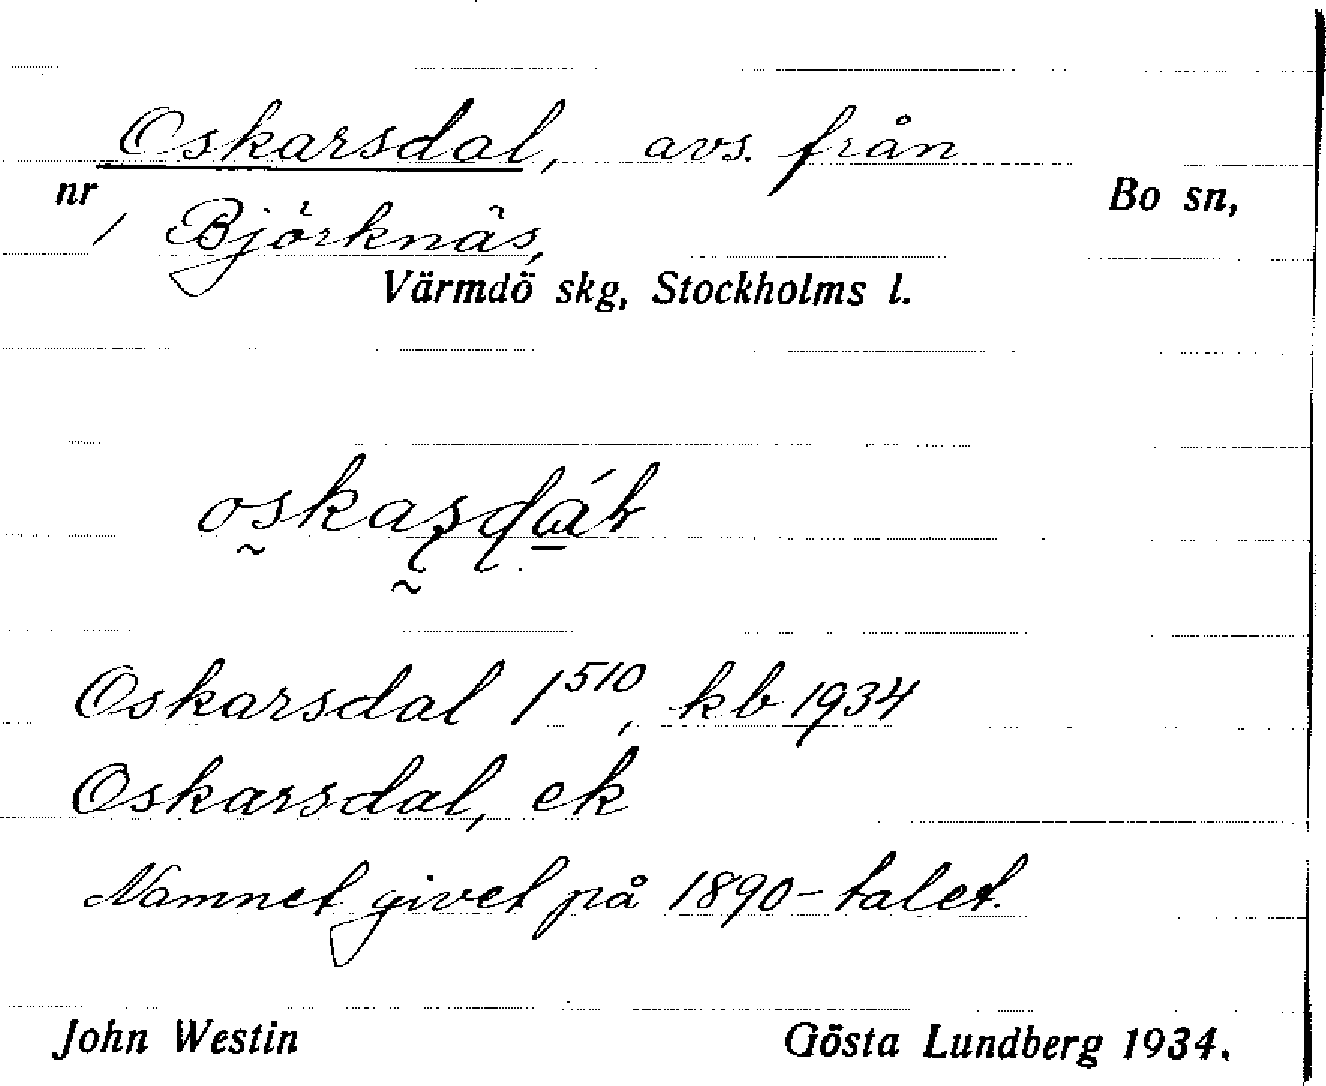 Oskarsdal, avs. från
nr Bo sn,
Björknäs,
Värmdö skg, Stockholms l.
Oskarsdal 1⁵¹⁰, kb 1934
Oskarsdal, ek
Namnet givet på 1890-talet.
John Westin Gösta Lundberg 1934.